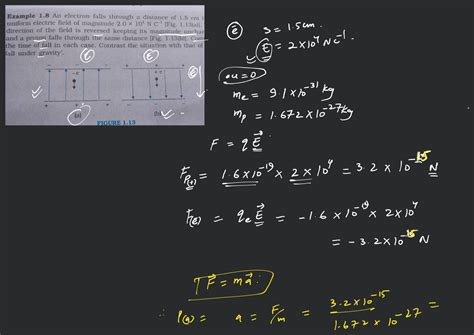 Example 1.8 An electron falls through a distance of 1.5 cm in
uniform electric field of magnitude 2.0 × 10⁴ N C⁻¹ [Fig. 1.13(a)].
direction of the field is reversed keeping its magnitude unchan
and a proton falls through the same distance [Fig. 1.13(b)]. Com
the time of fall in each case. Contrast the situation with that of
fall under gravity'.
-e
(a)
(b)
FIGURE 1.13
ⓔ s = 1.5cm.
E = 2×10⁴ NC⁻¹
u=0
mₑ = 9.1×10⁻³¹ kg
mₚ = 1.672×10⁻²⁷ kg
F = qE⃗
= 1.6×10⁻¹⁹ × 2×10⁴ = 3.2×10⁻¹⁵ N
F(e) = qₑE⃗ = -1.6×10⁻¹⁹ × 2×10⁴
= -3.2×10⁻¹⁵ N
F⃗ = ma⃗
a = F/m = 3.2×10⁻¹⁵ / 1.672×10⁻²⁷ =